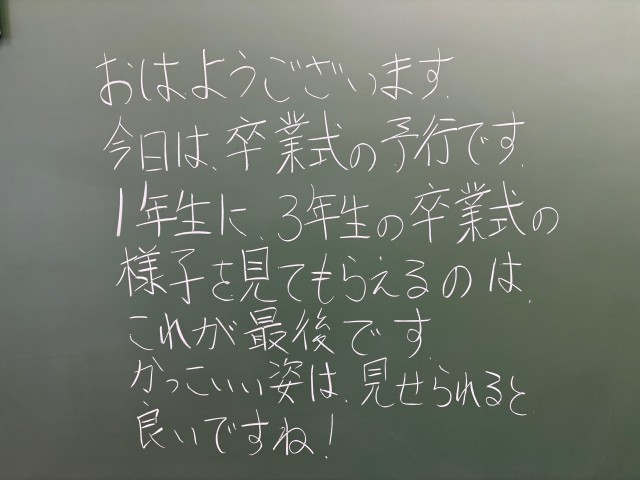 おはようございます.
今日は、卒業式の予行です.
1年生に、3年生の卒業式の
様子を見てもらえるのは、
これが最後です.
かっこいい姿は、見せられると
良いですね!